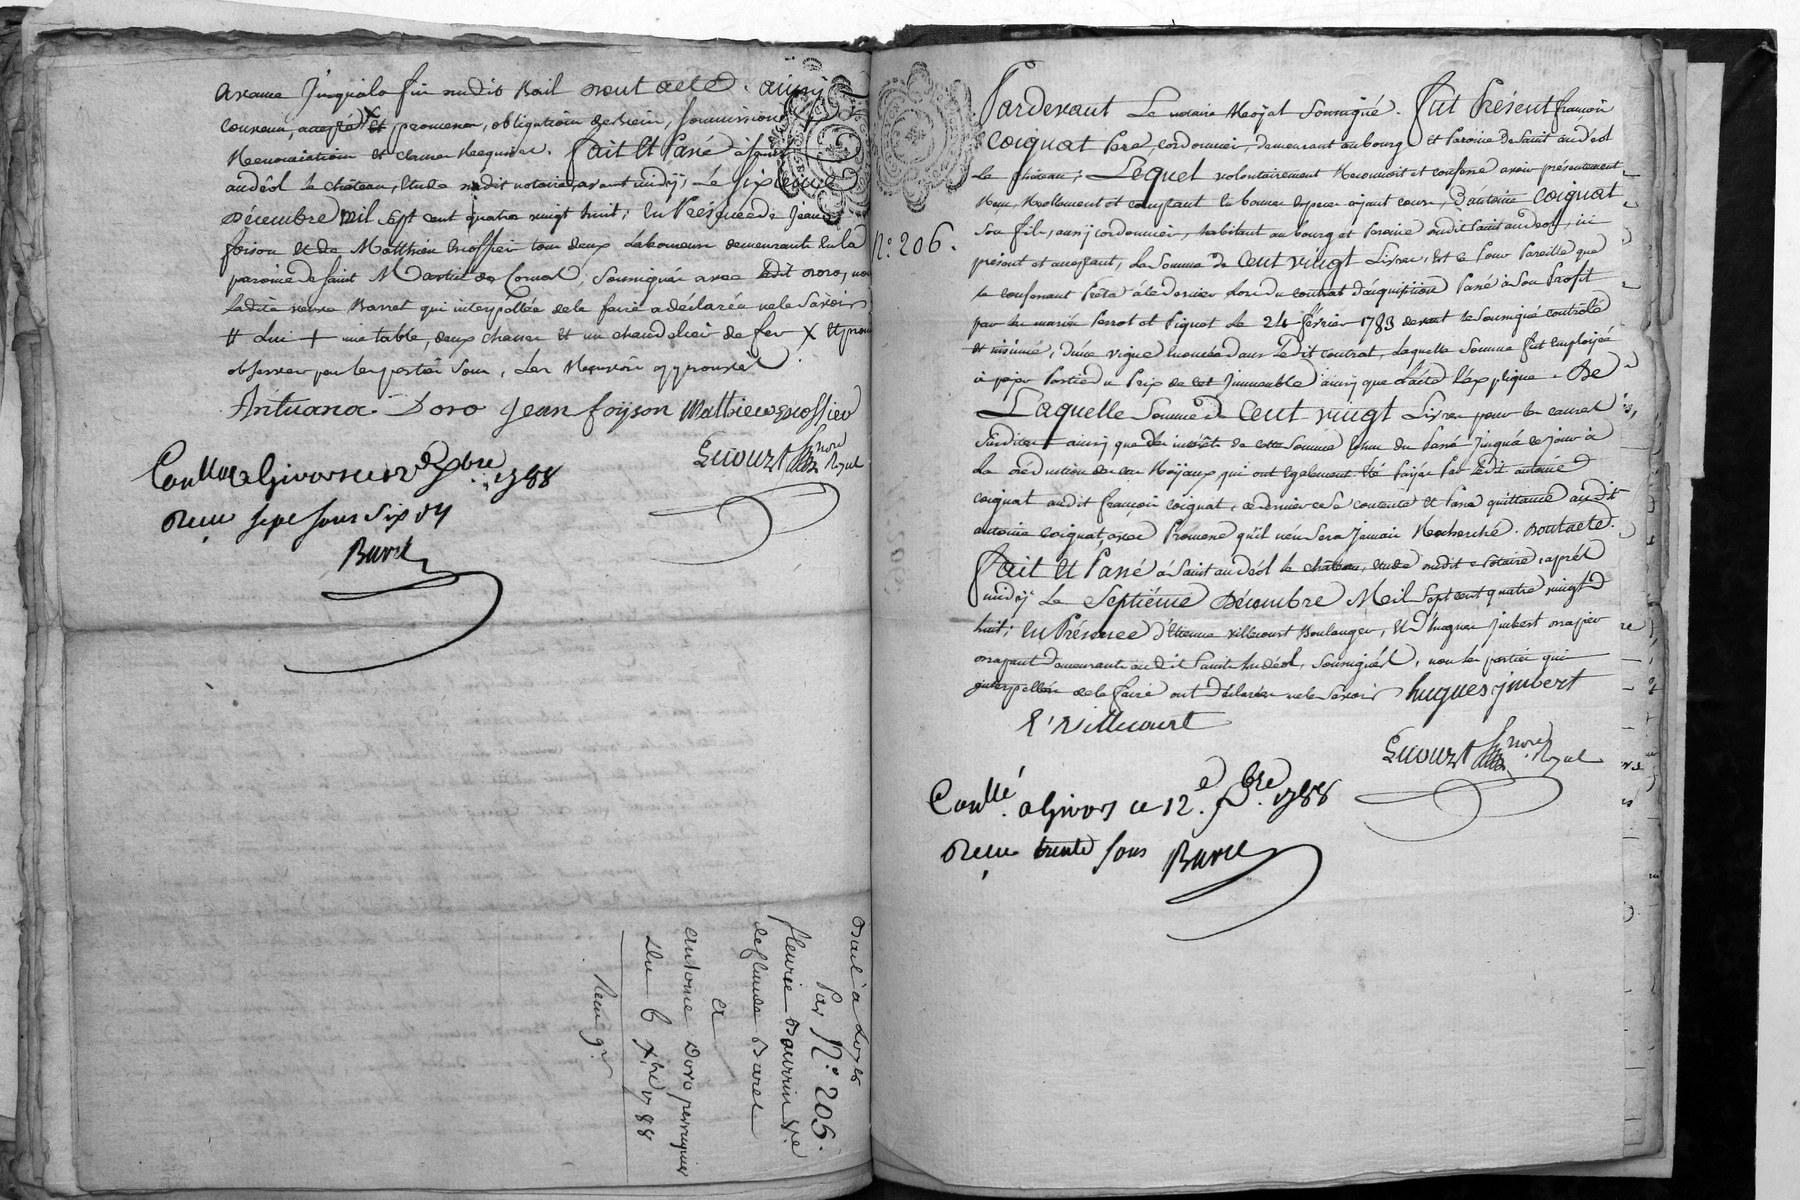 avance jusqu'a la fin dudit Bail dont acte. ainsy
convenu, accepté et promesses, obligation de biens, soumissions
Renonciation et clauses Requises. Fait Et Passé à saint
andéol le château, étude dudit notaire, avant midÿ, Le sixieme
Décembre Mil sept cent quatre vingt huit; En Présence de Jean
foison et de Matthieu brossier tous deux Laboureurs demeurants en la
paroisse de saint Martin de Cornas, soussignés avec ledit Doro, non
ladite veuve Barret qui interpellée de le faire a déclaré ne le savoir
# Lui + une table, deux chaises et un chandelier de fer X Et pour
observer par les parties sous, les Renvois approuvés
Antuana. Doro Jean foÿson Matthieu Brossier
Lecourt nore Royal
Conllé a Givors ce 12 Xbre 1788
Reçu sept sous six d
Burel
Bail à Loyer
Par N.° 205.
fleurie Baurin ve
de Claude Barel
a
antoine Doro perruquier
Du 6 Xbre 1788
N.° 206.
Pardevant Le notaire Royal soussigné. Fut Présent françois
Coignat Pere, cordonnier, demeurant au bourg et Paroisse de Saint andéol
Le chateau; Lequel volontairement Reconnoit et confesse avoir présentement
Reçu, Réellement et comptant en bonnes especes aÿant cours, D'antoine Coignat
son fils, aussÿ cordonnier, habitant au bourg et Paroisse dudit saint andéol, ici
présent et acceptant, La somme de Cent vingt Livres, Est ce Pour Pareille que
le confessant Preta à ce dernier Lors du contrat d'acquisition Passé à son Profit
par les mariés Perrot et Piquet Le 24 février 1783 devant le soussigné controlé
et insinué, d'une vigne enoncée dans ledit contrat, Laquelle somme fut Employée
à paÿer Partie du Prix de cet Immeuble ainsÿ que l'acte l'explique. De
Laquelle Somme de Cent vingt Livres pour les causes
susdites ainsÿ que des interêts de cette somme Echus du Passé jusqu'à ce jour à
La déduction des Roÿaux qui ont Egalement été Païés Par ledit antoine
Coignat audit françois Coignat, ce dernier se contente et Passe quittance audit
antoine Coignat, avec Promesse qu'il n'en sera jamais Recherché. Dont acte.
Fait Et Passé à Saint andéol le château, étude dudit Notaire, après
midÿ Le Septiéme Décembre Mil Sept cent quatre vingt
huit; En Présence d'Etienne villecourt Boulanger, Et d'hugues jmbert
demeurants audit Saint Andéol, soussignés, non les parties qui
interpellées de le faire ont Déclaré ne le savoir hugues jmbert
E. Villecourt
Lecourt nore Royal
Conllé a Givors ce 12 e Xbre 1788
Reçu trente sous Burel